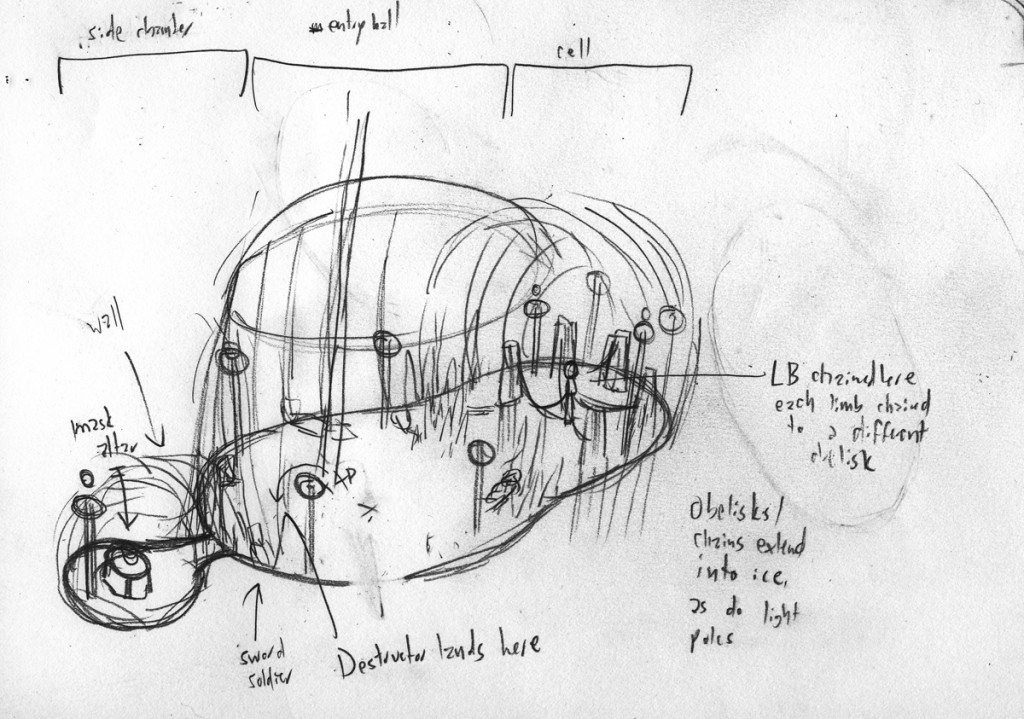 side chamber
entry hall
cell
wall
mask
altar
LB chained here
each limb chained
to a different
obelisk
AP
Obelisks/
chains extend
into ice,
as do light
poles
sword
soldier
Destructor lands here